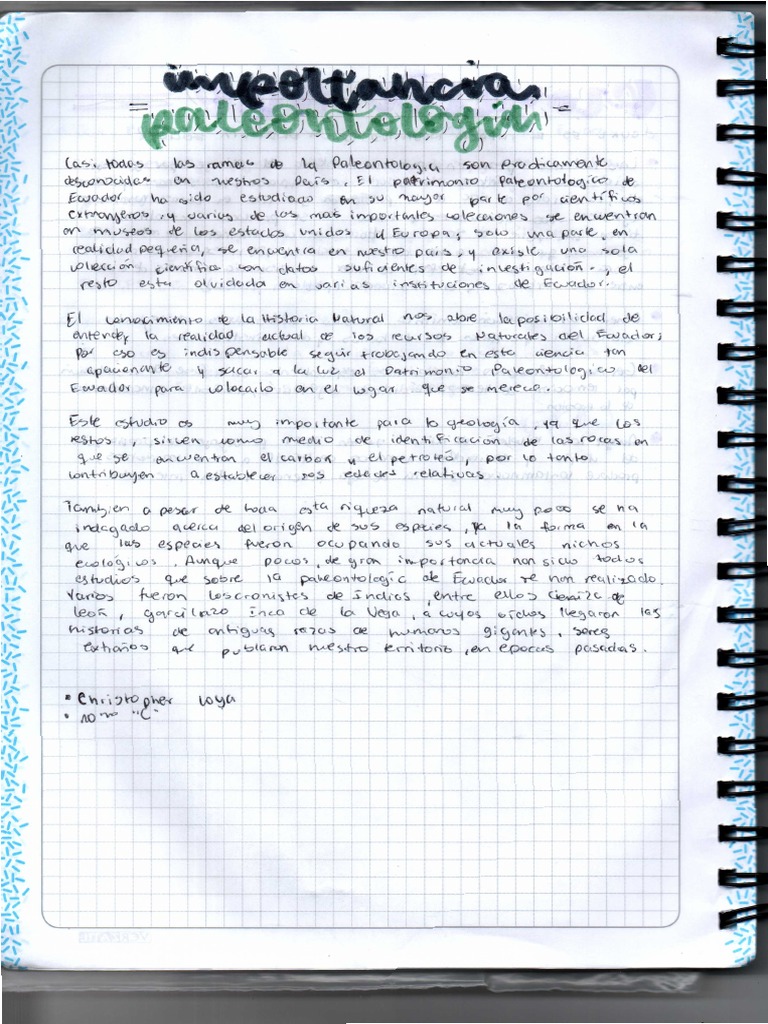 importancia
= paleontologia =
Casi todas las ramas de la Paleontologia son practicamente
desconocidas en nuestros Pais. El patrimonio Paleontologico de
Ecuador ha sido estudiado en su mayor parte por científicos
extranjeros, y varias de las mas importantes colecciones se encuentran
en museos de los estados unidos y Europa; solo una parte, en
realidad pequeña, se encuentra en nuestro pais, y existe una sola
colección científica con datos suficientes de investigación., el
resto esta olvidada en varias instituciones de Ecuador.
El conocimiento de la Historia Natural nos abre la posibilidad de
entender la realidad actual de los recursos Naturales del Ecuador;
Por eso es indispensable seguir trabajando en esta ciencia tan
apacionante y sacar a la luz el Patrimonio Paleontologico del
Ecuador para colocarlo en el lugar que se merece.
Este estudio es muy importante para la geología, ya que los
restos, sirven como medio de identificación de las rocas en
que se encuentran el carbon y el petroleo, por lo tanto
contribuyen a establecer sus edades relativas
Tambien a pesar de toda esta riqueza natural muy poco se ha
indagado acerca del origen de sus especies, ya la forma en la
que las especies fueron ocupando sus actuales nichos
ecológicos. Aunque pocos, de gran importancia han sido todos
estudios que sobre la paleontologia de Ecuador se han realizado.
Varios fueron los cronistas de Indias, entre ellos Cieniza de
león, garcilazo Inca de la Vega, a cuyos oidos llegaron las
historias de antiguas razas de humanos gigantes, seres
extraños que poblaron nuestro territorio, en epocas pasadas.
• Christopher Loya
• 10mo "C"